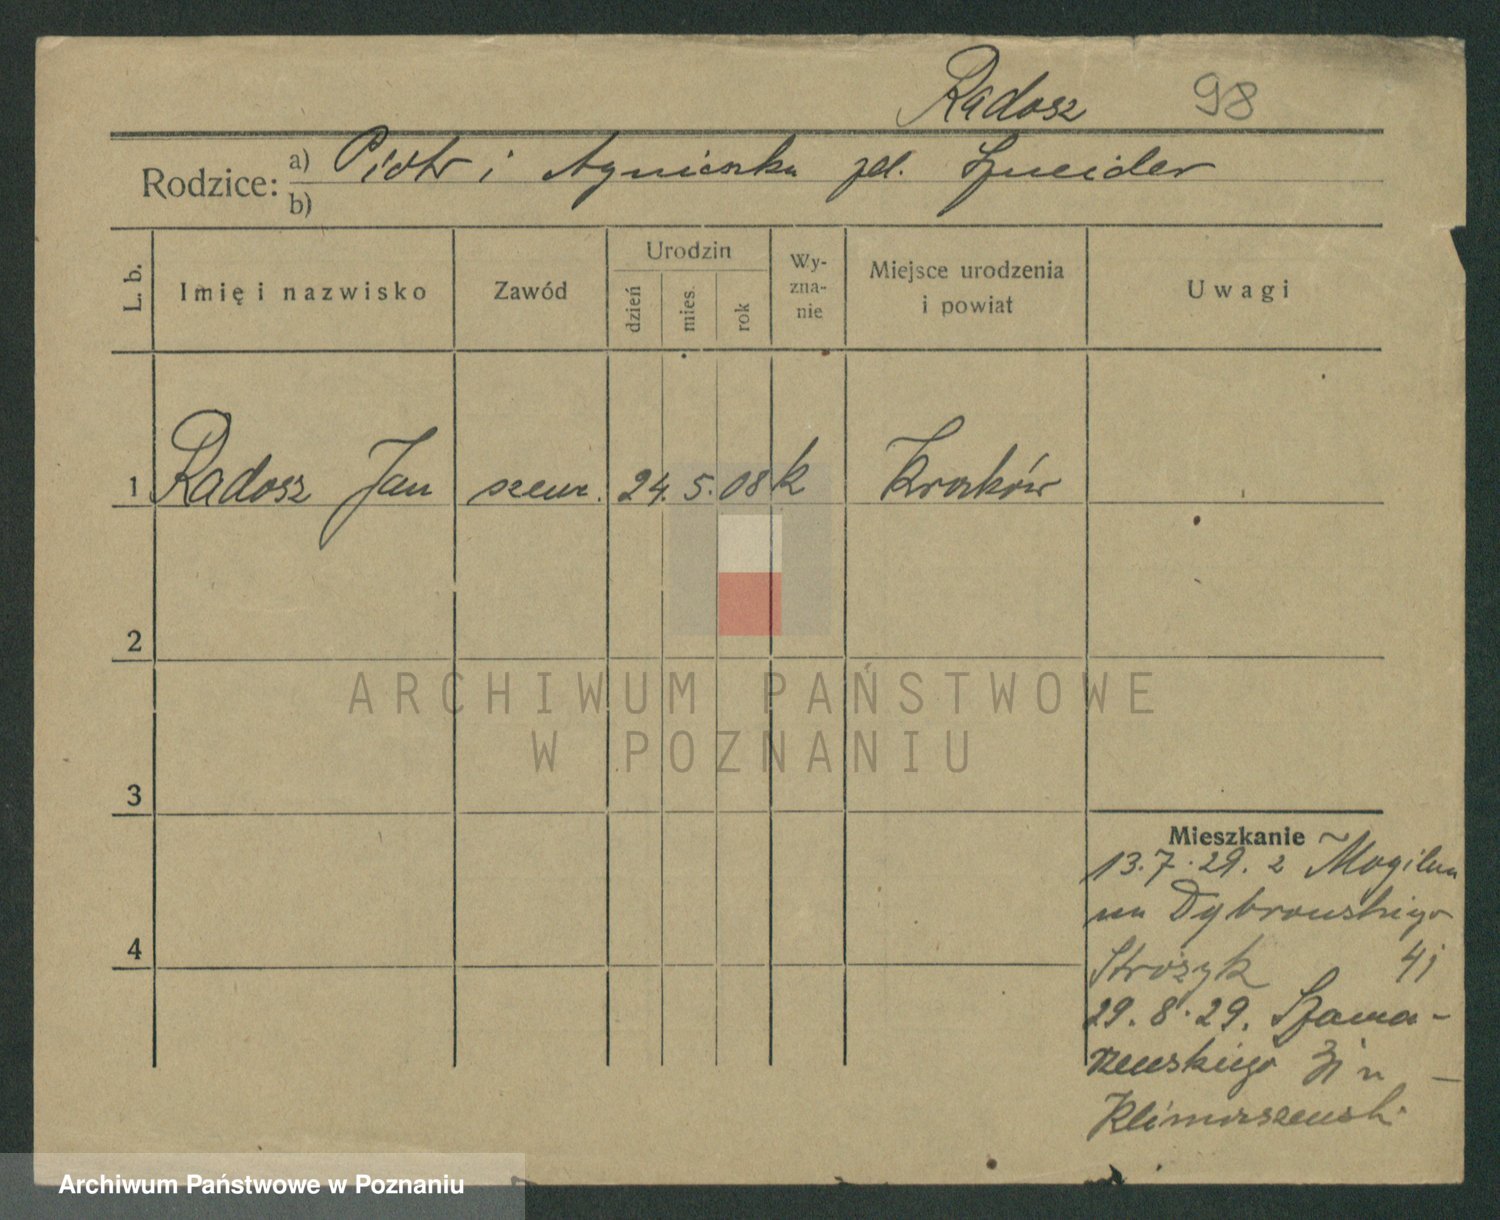 Radosz 98
Rodzice: a) Piotr i Agnieszka zd. Szneider
b)
L. b. Imię i nazwisko Zawód Urodzin dzień mies. rok Wyznanie Miejsce urodzenia i powiat Uwagi
1 Radosz Jan szewc. 24. 5. 08 k Kraków
2
ARCHIWUM PAŃSTWOWE
W POZNANIU
3
Mieszkanie
13.7.29. z Mogilna
na Dąbrowskiego
Strożyk 41
29.8.29. Szama-
rzewskiego 31 u
4
Archiwum Państwowe w Poznaniu